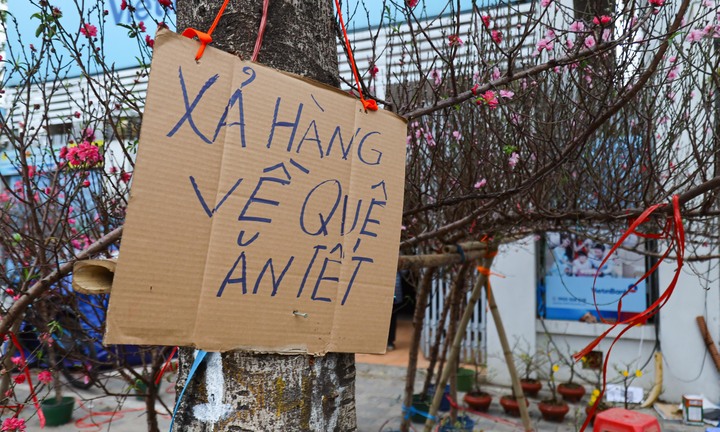 XẢ HÀNG
VỀ QUÊ
ĂN TẾT
VietinBank